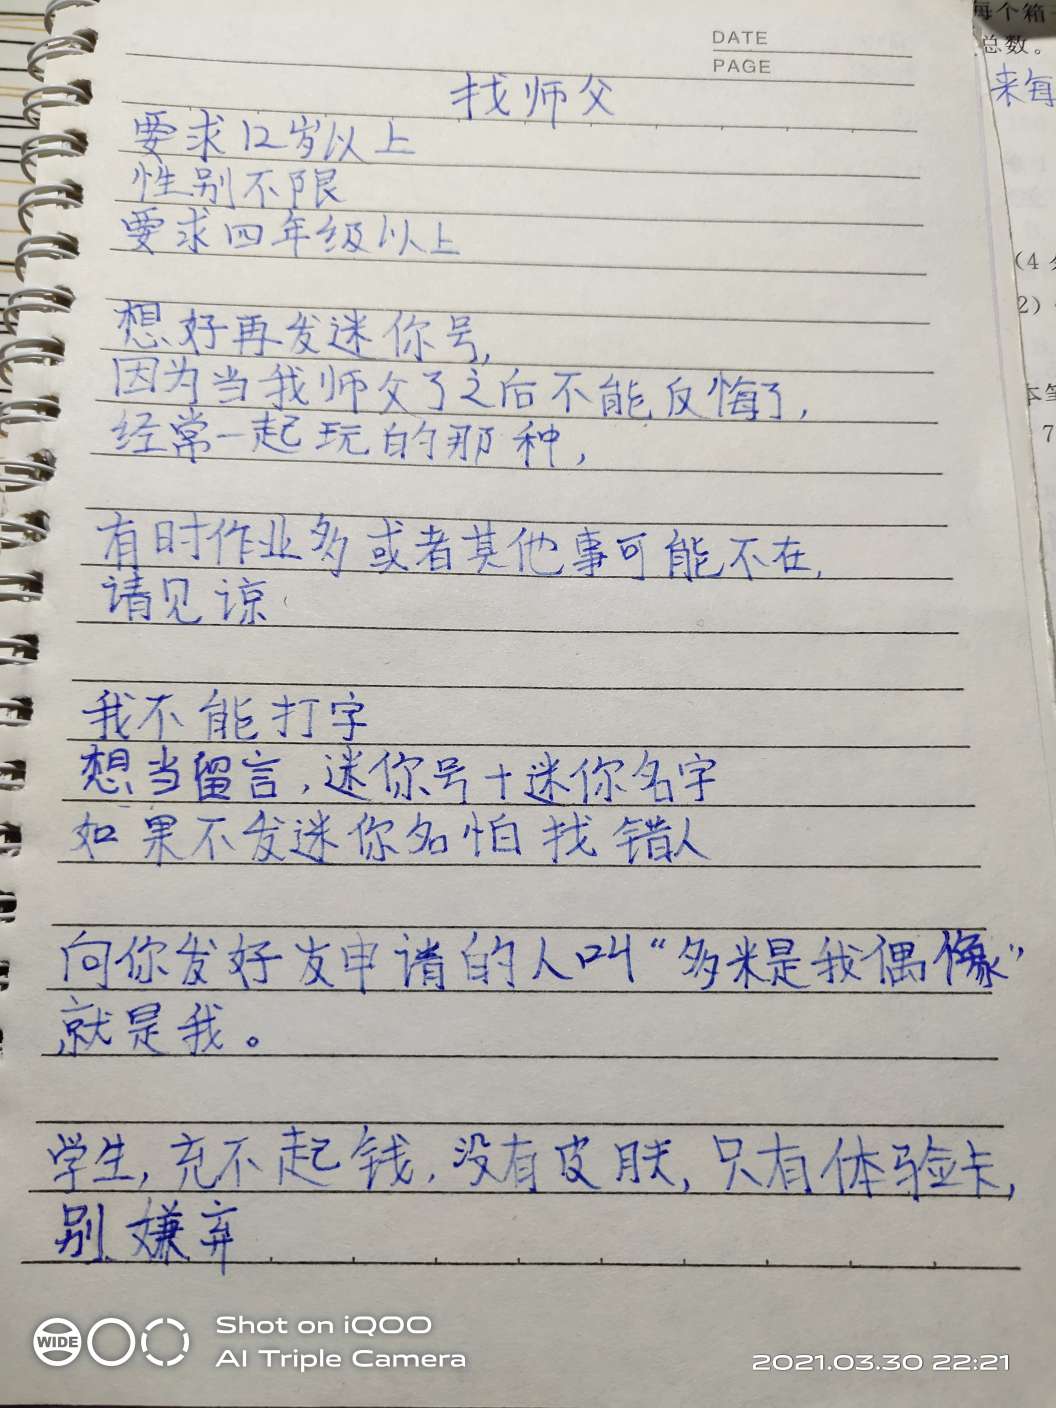 DATE
PAGE
找师父
要求12岁以上
性别不限
要求四年级以上
想好再发迷你号,
因为当我师父了之后不能反悔了,
经常一起玩的那种,
有时作业多或者其他事可能不在,
请见谅
我不能打字
想当留言,迷你号+迷你名字
如果不发迷你名怕找错人
向你发好友申请的人叫“多米是我偶像”
就是我。
学生,充不起钱,没有皮肤,只有体验卡,
别嫌弃
每个箱
总数。
来每
(4分
2)
本笔
7
WIDE
Shot on iQOO
AI Triple Camera
2021.03.30 22:21